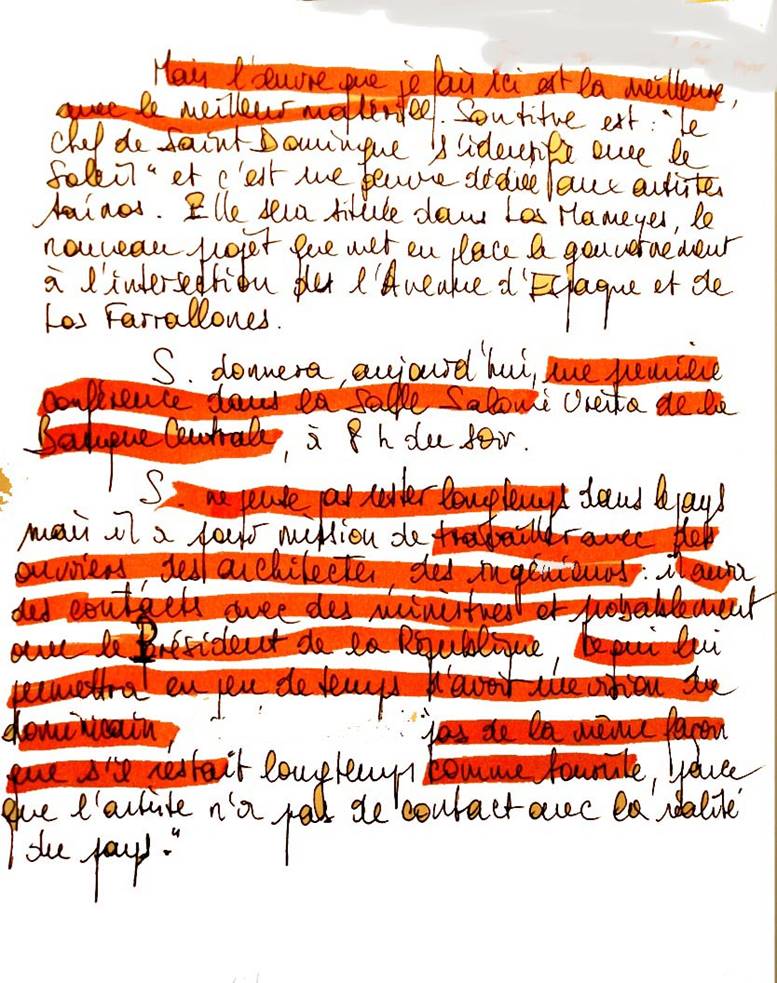 Mais l'œuvre que je fais ici est la meilleure,
avec le meilleur matériel. Son titre est : "Le
chef de Saint Domingue s'identifie avec le
Soleil" et c'est une œuvre dédiée aux artistes
taïnos. Elle sera située dans Los Mameyes, le
nouveau projet que met en place le gouvernement
à l'intersection des l'Avenue d'Espagne et de
Los Farrallones.
S. donnera, aujourd'hui, une première
conférence dans la Salle Salomé Ureña de la
Banque Centrale, à 8 h du soir.
S. ne pense pas rester longtemps dans le pays
mais il a pour mission de travailler avec des
ouvriers, des architectes, des ingénieurs : il aura
des contacts avec des ministres et probablement
avec le Président de la République, ce qui lui
permettra en peu de temps d'avoir une vision du
dominicain, pas de la même façon
que s'il restait longtemps comme touriste, parce
que l'artiste n'a pas de contact avec la réalité
du pays."